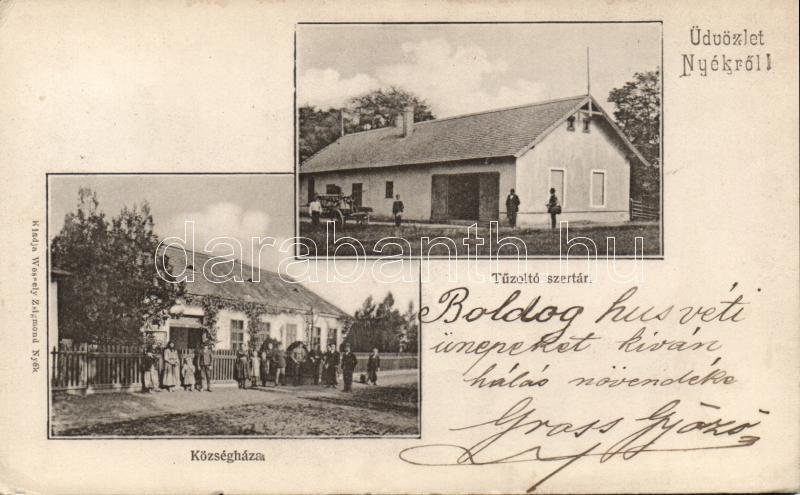 Üdvözlet
Nyékről!
Tűzoltó szertár.
Kiadja Wessely Zsigmond Nyék
Községháza.
Boldog husvéti
ünepeket kiván
hálás növendéke
Grass Győző
darabanth.hu